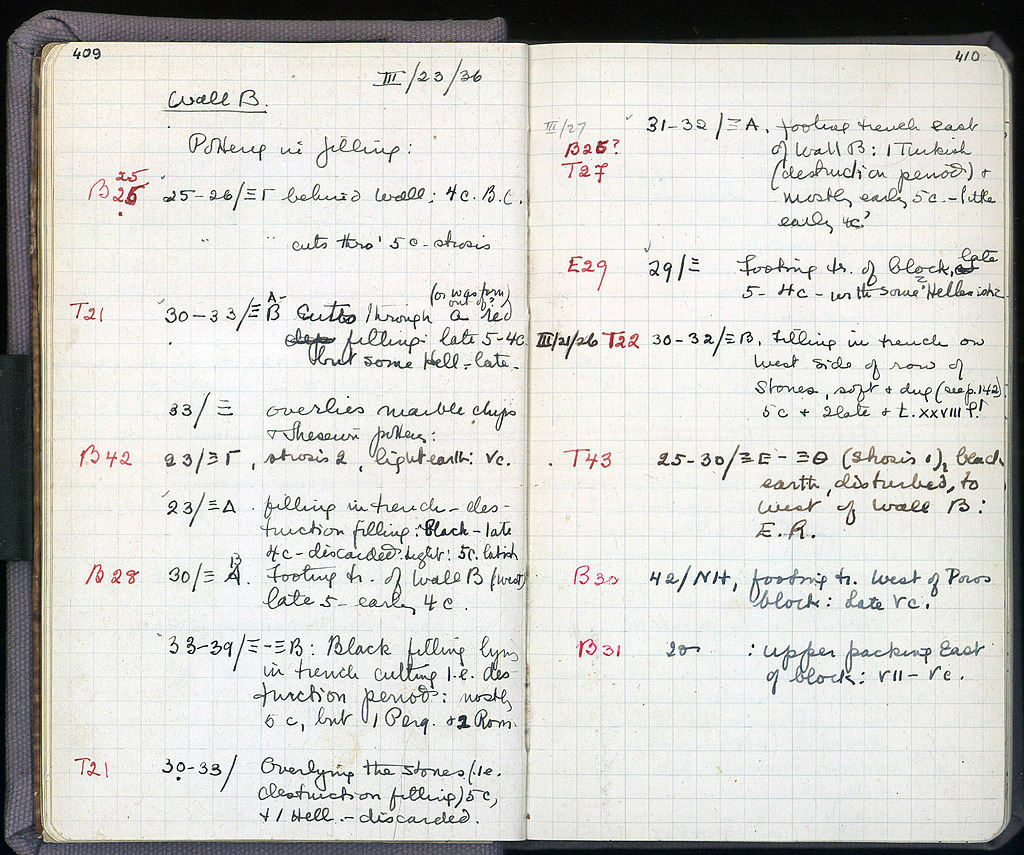 409
III/23/36
Wall B.
Pottery in filling:
25
B26 25-26/ΞΓ behind wall: 4c. B.C.
" " cuts thro' 5c-strosis
(or was from)
out of?
A-
T21 30-33/Ξ B Cutts through a red
dep filling: late 5-4c.
but some Hell-late-
33/Ξ overlies marble chips
+ Theseion pottery:
B42 23/ΞΓ, strosis 2, light earth: Vc.
23/ΞΔ. filling in trench-des-
truction filling: Black-late
4c-discarded. Light: 5c. latish
B
B28 30/Ξ A. Footing tr. of Wall B (west)
late 5-early 4c.
33-39/Ξ-ΞB: Black filling lying
in trench cutting i.e. des
truction period: mostly
5c, but 1 Perg. +2 Rom.
T21 30-33/ Overlying the stones (i.e.
destruction filling) 5c,
+ 1 Hell.-discarded.
410
III/27 31-32/ΞA. footing trench east
B26? of Wall B: 1 Turkish
T27 (destruction period) +
mostly early 5c.-
early 4c?
late
E29 29/Ξ Footing tr. of block,
5-4c-with some Hellenistic
III/21/26 T22 30-32/ΞB. Filling in trench on
west side of row of
stones, soft + dug (see p.142)
5c + 2 late + L. XXVIII P!
T43 25-30/ΞE-ΞΘ (Strosis 1), black
earth, disturbed, to
west of Wall B:
E.R.
B30 42/NH, footing tr. West of Poros
block: Late Vc.
B31 20 : upper packing East
of block: VII-Vc.